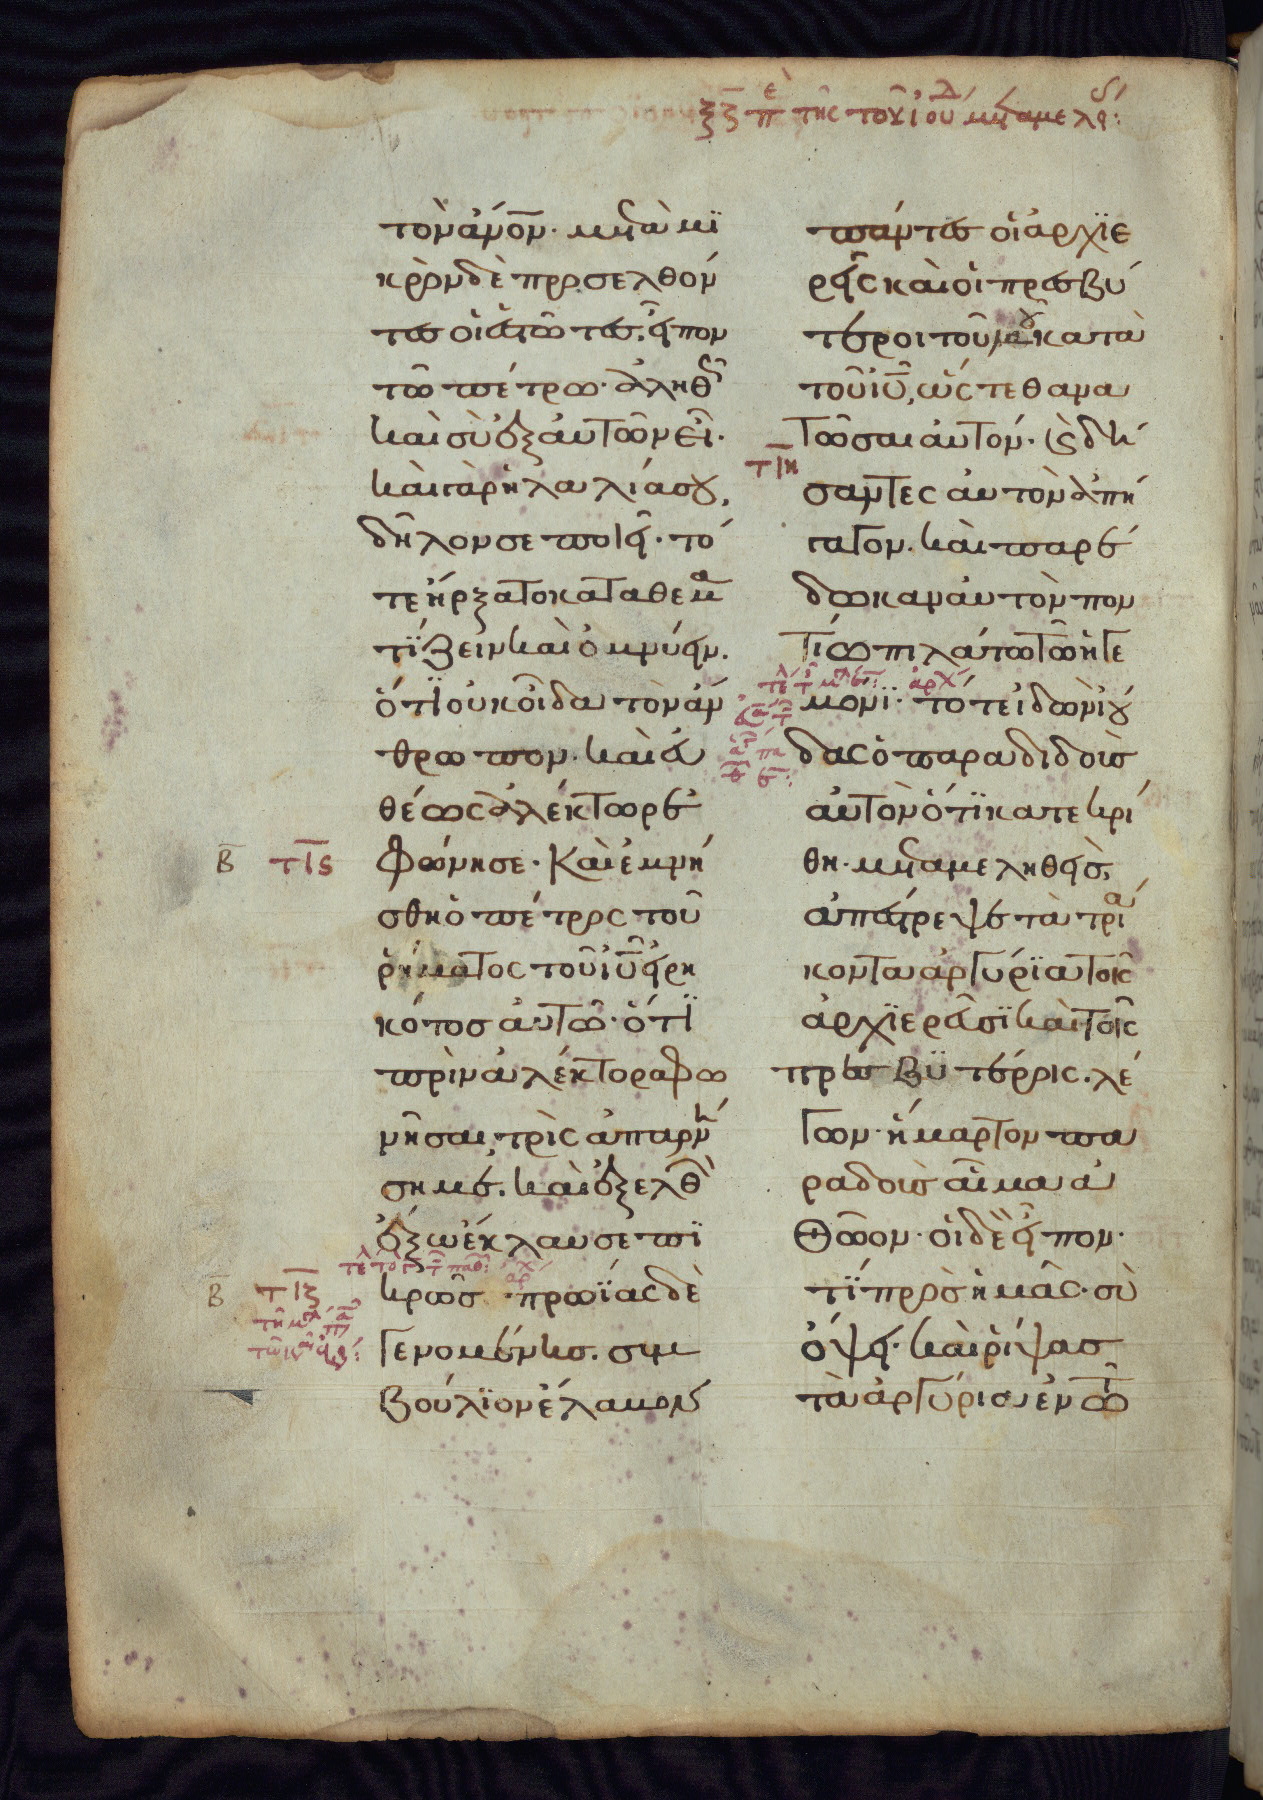 τὸν ἀνο̅ν· μετὰ μι
κρὸν δὲ προσελθόν
τες οἱ ἑστῶτες, εἶπον
τῶ πέτρω· ἀληθῶς
καὶ σὺ ἐξ αὐτῶν εἶ·
καὶ γὰρ ἡ λαλιά σου,
δῆλόν σε ποιεῖ· τό
τε ἤρξατο καταθεμα
τίζειν καὶ ὀμνύειν.
ὅτι οὐκ οἶδα τὸν ἄν
θρωπον· καὶ εὐ
θέως ἀλέκτωρ ἐ
Β τις φώνησε· Καὶ ἐμνή
σθη ὁ πέτρος τοῦ
ῥήματος τοῦ ιυ̅ εἰρη
κότος αὐτῶ· ὅτι
πρὶν ἀλέκτορα φω
νῆσαι, τρὶς ἀπαρνή
ση με. καὶ ἐξελθὼν
ἔξω ἔκλαυσε πι
Β τιζ κρῶς· πρωΐας δὲ
γενομένης. συμ
βούλιον ἔλαβον
πάντες οἱ ἀρχιε
ρεῖς καὶ οἱ πρεσβύ
τεροι τοῦ λαοῦ κατὰ
τοῦ ιυ̅, ὥστε θανα
τῶσαι αὐτόν· καὶ δή
τιη σαντες αὐτὸν ἀπή
γαγον. καὶ παρέ
δωκαν αὐτὸν πον
τίω πιλάτω τῶ ἡγε
μόνι· τότε ἰδὼν ἰού
δας ὁ παραδιδοὺς
αὐτὸν ὅτι κατεκρί
θη· μεταμεληθεὶς,
ἀπέστρεψε τὰ τριά
κοντα ἀργύρια τοῖς
ἀρχιερεῦσι καὶ τοῖς
πρεσβυτέροις. λέ
γων· ἥμαρτον πα
ραδοὺς αἷμα ἀ
θῶον· οἱ δὲ εἶπον·
τί πρὸς ἡμᾶς· σὺ
ὄψει· καὶ ῥίψας
τὰ ἀργύρια ἐν τῶ